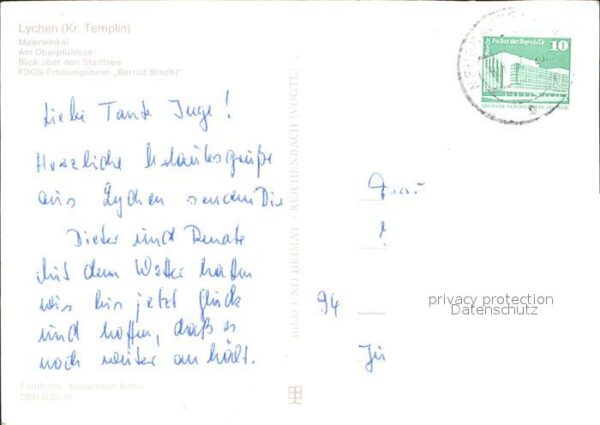 Lychen (Kr. Templin)
Malerwinkel
Am Oberpfuhlsee
Blick über den Stadtsee
FDGB-Erholungsheim „Bertolt Brecht"
Liebe Tante Inge!
Herzliche Urlaubsgrüße
aus Lychen senden Dir
Dieter und Renate
Mit dem Wetter hatten
wir bis jetzt Glück
und hoffen, daß es
noch weiter anhält.
Farbfotos: Kämpmann, Berlin
DDR 0,20 M
BILD UND HEIMAT REICHENBACH (VOGTL)
Palast der Republik
10
Frau
94
privacy protection
Datenschutz